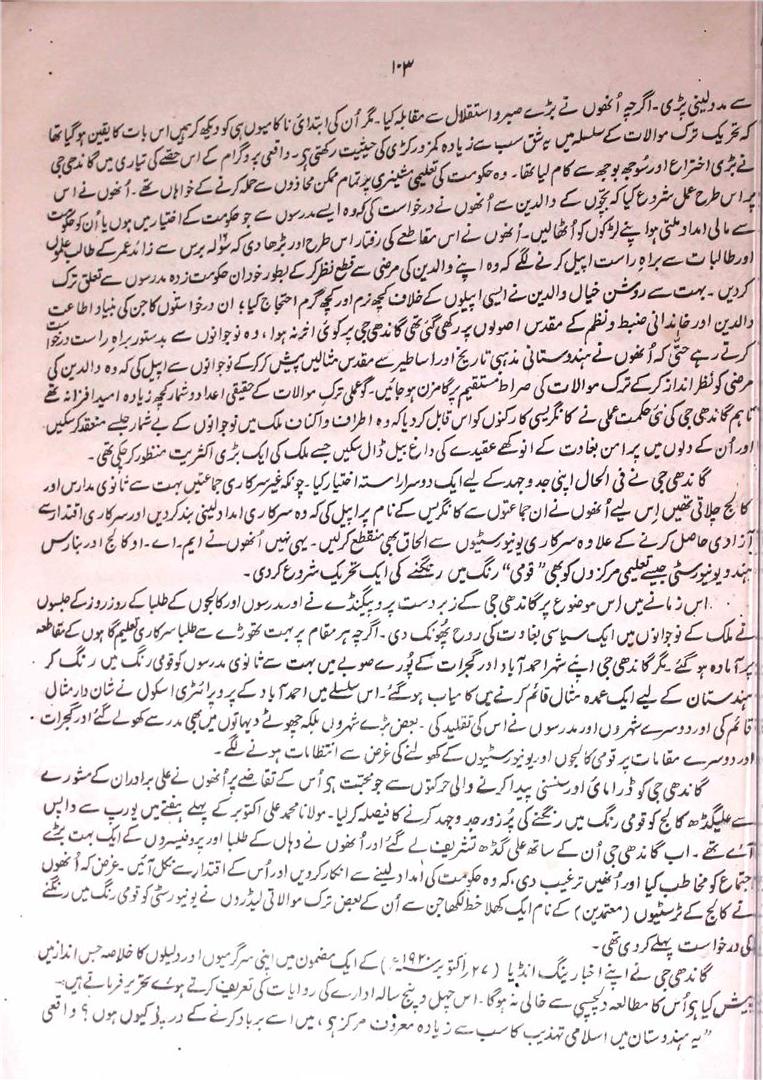 ۱۰۳
سے مدد لینی پڑی۔ اگرچہ اُنھوں نے بڑے صبر و استقلال سے مقابلہ کیا۔ مگر اُن کی ابتدائی ناکامیوں ہی کو دیکھ کر ہمیں اس بات کا یقین ہو گیا تھا
کہ تحریک ترک موالات کے سلسلہ میں یہ شق سب سے زیادہ کمزور کڑی کی حیثیت رکھتی ہے۔ واقعی پروگرام کے اس حصّے کی تیاری میں گاندھی جی
نے بڑی اختراع اور سُوجھ بوجھ سے کام لیا تھا۔ وہ حکومت کی تعلیمی مشینری پر تمام ممکن محاذوں سے حملہ کرنے کے خواہاں تھے۔ اُنھوں نے اس
پر اس طرح عمل شروع کیا کہ بچّوں کے والدین سے اُنھوں نے درخواست کی کہ وہ ایسے مدرسوں سے جو حکومت کے اختیار میں ہوں یا اُن کو حکومت
سے مالی امداد ملتی ہو اپنے لڑکوں کو اُٹھالیں۔ اُنھوں نے اس مقاطعے کی رفتار اس طرح اور بڑھا دی کہ سولہ برس سے زائد عمر کے طالب علموں
اور طالبات سے براہِ راست اپیل کرنے لگے کہ وہ اپنے والدین کی مرضی سے قطع نظر کر کے بطور خود ان حکومت زدہ مدرسوں سے تعلق ترک
کردیں۔ بہت سے روشن خیال والدین نے ایسی اپیلوں کے خلاف کچھ نرم اور کچھ گرم احتجاج کیا؛ ان درخواستوں کا جن کی بنیاد اطاعت
والدین اور خاندانی ضبط و نظم کے مقدس اصولوں پر رکھی گئی تھی گاندھی جی پر کوئی اثر نہ ہوا، وہ نوجوانوں سے بدستور براہِ راست درخواست
کرتے رہے حتّٰی کہ اُنھوں نے ہندوستانی مذہبی تاریخ اور اساطیر سے مقدس مثالیں پیش کر کر کے نوجوانوں سے اپیل کی کہ وہ والدین کی
مرضی کو نظر انداز کر کے ترک موالات کی صراط مستقیم پر گامزن ہو جائیں۔ گو عملی ترک موالات کے حقیقی اعداد و شمار کچھ زیادہ امید افزا نہ تھے
تاہم گاندھی جی کی نئی حکمت عملی نے کانگریسی کارکنوں کو اس قابل کر دیا کہ وہ اطراف و اکناف ملک میں نوجوانوں کے بے شمار جلسے منعقد کر سکیں
اور اُن کے دلوں میں پر امن بغاوت کے انوکھے عقیدے کی داغ بیل ڈال سکیں جسے ملک کی ایک بڑی اکثریت منظور کر چکی تھی۔
گاندھی جی نے فی الحال اپنی جدوجہد کے لیے ایک دوسرا راستہ اختیار کیا۔ چونکہ غیر سرکاری جماعتیں بہت سے ثانوی مدارس اور
کالج چلاتی تھیں اِس لیے اُنھوں نے ان جماعتوں سے کانگریس کے نام پر اپیل کی کہ وہ سرکاری امداد لینی بند کردیں اور سرکاری اقتدار سے
آزادی حاصل کرنے کے علاوہ سرکاری یونیورسٹیوں سے الحاق بھی منقطع کرلیں۔ یہی نہیں اُنھوں نے ایم۔ اے۔ او کالج اور بنارس
ہندو یونیورسٹی جیسے تعلیمی مرکزوں کو بھی "قومی" رنگ میں رنگنے کی ایک تحریک شروع کردی۔
اس زمانے میں اس موضوع پر گاندھی جی کے زبردست پروپیگنڈے نے اور مدرسوں اور کالجوں کے طلبا کے روز روز کے جلسوں
نے ملک کے نوجوانوں میں ایک سیاسی بغاوت کی روح پھونک دی۔ اگرچہ ہر مقام پر بہت تھوڑے سے طلبا سرکاری تعلیم گاہوں کے مقاطعہ
پر آمادہ ہو گئے۔ مگر گاندھی جی اپنے شہر احمد آباد اور گجرات کے پُورے صوبے میں بہت سے ثانوی مدرسوں کو قومی رنگ میں رنگ کر
ہندستان کے لیے ایک عمدہ مثال قائم کرنے میں کامیاب ہو گئے۔ اس سلسلے میں احمد آباد کے پروپرائٹری اسکول نے شاندار مثال
قائم کی اور دوسرے شہروں اور مدرسوں نے اس کی تقلید کی۔ بعض بڑے شہروں بلکہ چھوٹے دیہاتوں میں بھی مدرسے کھولے گئے اور گجرات
اور دوسرے مقامات پر قومی کالجوں اور یونیورسٹیوں کے کھولنے کی غرض سے انتظامات ہونے لگے۔
گاندھی جی کو ڈرامائی اور سنسنی پیدا کرنے والی حرکتوں سے جو محبّت ہے اُس کے تقاضے پر اُنھوں نے علی برادران کے مشورے
سے علیگڈھ کالج کو قومی رنگ میں رنگنے کی پُر زور جدوجہد کرنے کا فیصلہ کرلیا۔ مولانا محمد علی اکتوبر کے پہلے ہفتے میں یورپ سے واپس
آئے تھے۔ اب گاندھی جی اُن کے ساتھ علی گڈھ تشریف لے گئے اور اُنھوں نے وہاں کے طلبا اور پروفیسروں کے ایک بہت بڑے
اجتماع کو مخاطب کیا اور اُنھیں ترغیب دی، کہ وہ حکومت کی امداد لینے سے انکار کردیں اور اُس کے اقتدار سے نکل آئیں۔ غرض کہ اُنھوں
نے کالج کے ٹرسٹیوں (معتمدین) کے نام ایک کھلا خط لکھا جن سے اُن کے بعض ترک موالاتی لیڈروں نے یونیورسٹی کو قومی رنگ میں رنگنے
کی درخواست پہلے کردی تھی۔
گاندھی جی نے اپنے اخبار ینگ انڈیا (۲۷ اکتوبر ۱۹۲۰ء) کے ایک مضمون میں اپنی سرگرمیوں اور دلیلوں کا خلاصہ جس انداز میں
پیش کیا ہے اُس کا مطالعہ دلچسپی سے خالی نہ ہو گا۔ اس چہل و پنج سالہ ادارے کی روایات کی تعریف کرتے ہوئے تحریر فرماتے ہیں:۔
"یہ ہندوستان میں اسلامی تہذیب کا سب سے زیادہ معروف مرکز ہے، میں اسے برباد کرنے کے درپئی کیوں ہوں؟ واقعی